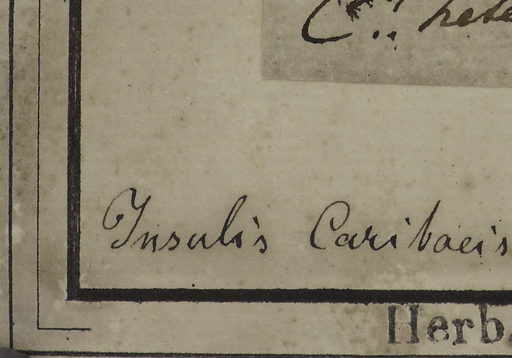 Insulis Caribaeis
Herb.